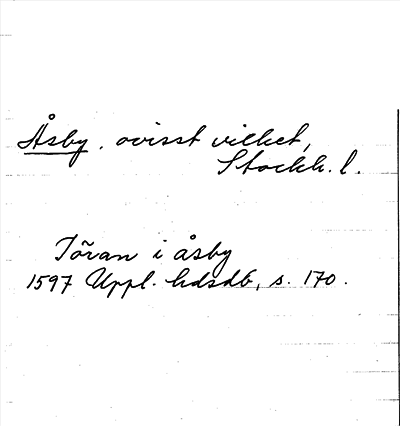 Åsby. ovisst vilket,
Stockh. l.
Jöran i åsby
1597 Uppl. hdsdb, s. 170.